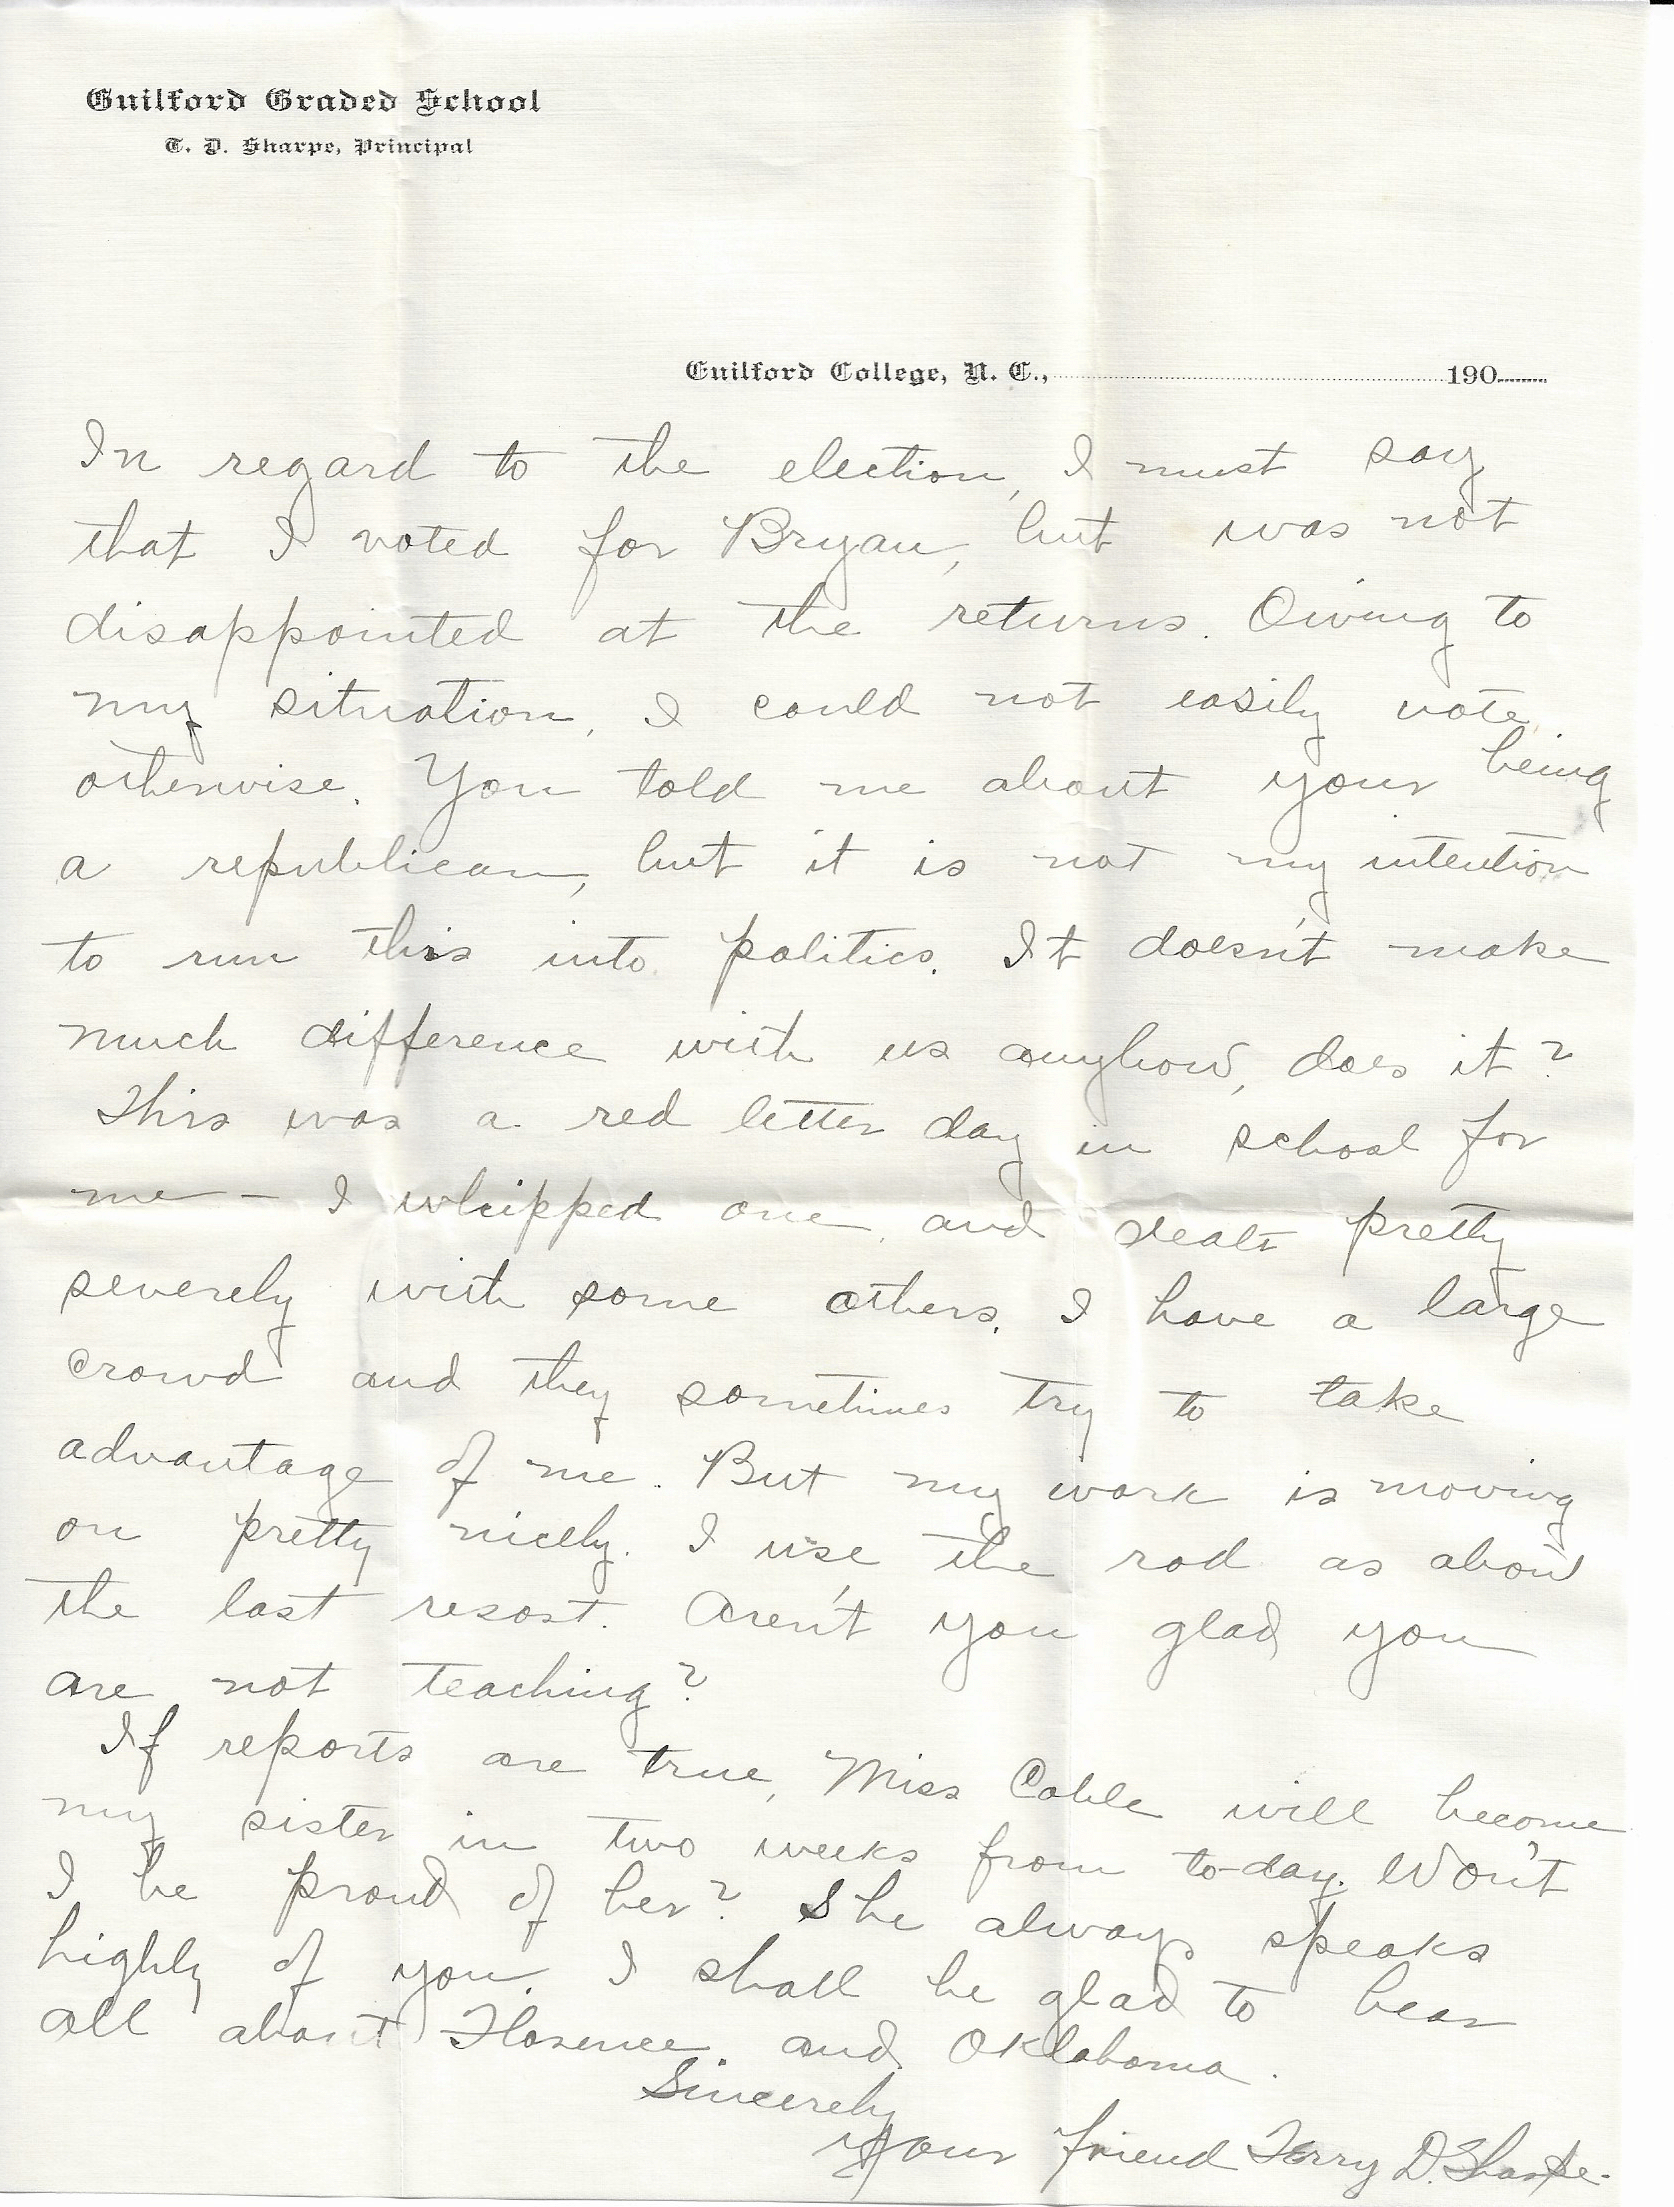 Guilford Graded School
T. D. Sharpe, Principal
Guilford College, N. C., 190
In regard to the election, I must say
that I voted for Bryan, but was not
disappointed at the returns. Owing to
my situation, I could not easily vote
otherwise. You told me about your being
a republican, but it is not my intention
to run this into politics. It doesn't make
much difference with us anyhow, does it?
This was a red letter day in school for
me — I whipped one, and dealt pretty
severely with some others. I have a large
crowd and they sometimes try to take
advantage of me. But my work is moving
on pretty nicely. I use the rod as about
the last resort. Aren't you glad you
are not teaching?
If reports are true, Miss Coble will become
my sister in two weeks from to-day. Won't
I be proud of her? She always speaks
highly of you. I shall be glad to hear
all about Florence and Oklahoma.
Sincerely
Your friend Terry D. Sharpe.